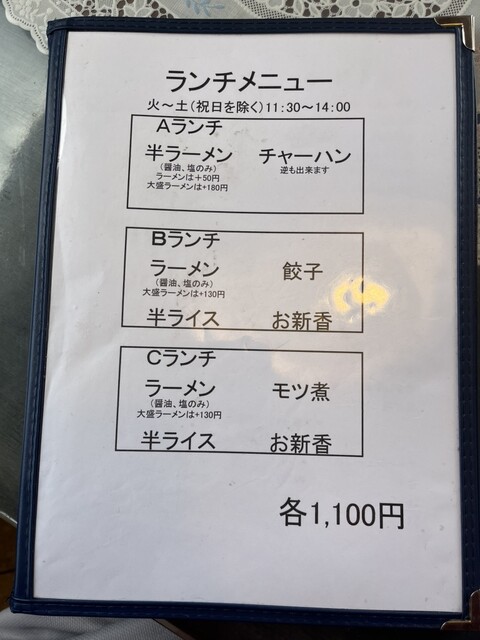 ランチメニュー
火～土(祝日を除く)11:30～14:00
Aランチ
半ラーメン チャーハン
(醤油、塩のみ) 逆も出来ます
ラーメンは+50円
大盛ラーメンは+180円
Bランチ
ラーメン 餃子
(醤油、塩のみ)
大盛ラーメンは+130円
半ライス お新香
Cランチ
ラーメン モツ煮
(醤油、塩のみ)
大盛ラーメンは+130円
半ライス お新香
各1,100円